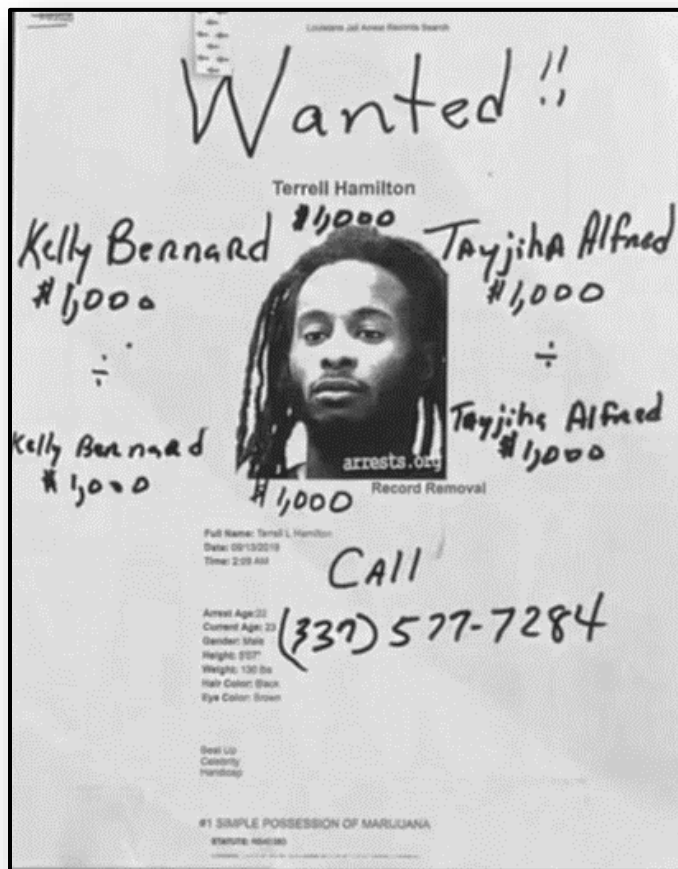 Louisiana Jail Arrest Records Search
Wanted !!
Terrell Hamilton
$1,000
Kelly Bernard
$1,000
÷
Kelly Bernard
$1,000
TAyjihA Alfred
$1,000
÷
Tayjiha Alfred
$1,000
arrests.org
Record Removal
$1,000
Full Name: Terrell L Hamilton
Date: 09/13/2019
Time: 2:09 AM
CAll
(337) 577-7284
Arrest Age:22
Current Age: 23
Gender: Male
Height: 5'07"
Weight: 130 lbs
Hair Color: Black
Eye Color: Brown
Beat Up
Celebrity
Handicap
#1 SIMPLE POSSESSION OF MARIJUANA
STATUTE: